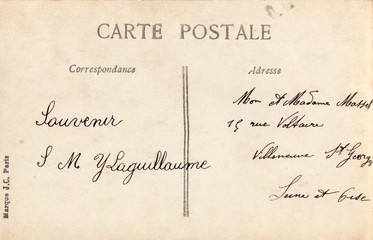 CARTE POSTALE
Correspondance
Adresse
Souvenir
S M Y Laguillaume
Mon et Madame Masset
15 rue Voltaire
Villeneuve St Georges
Seine et Oise
Marque J.C. Paris